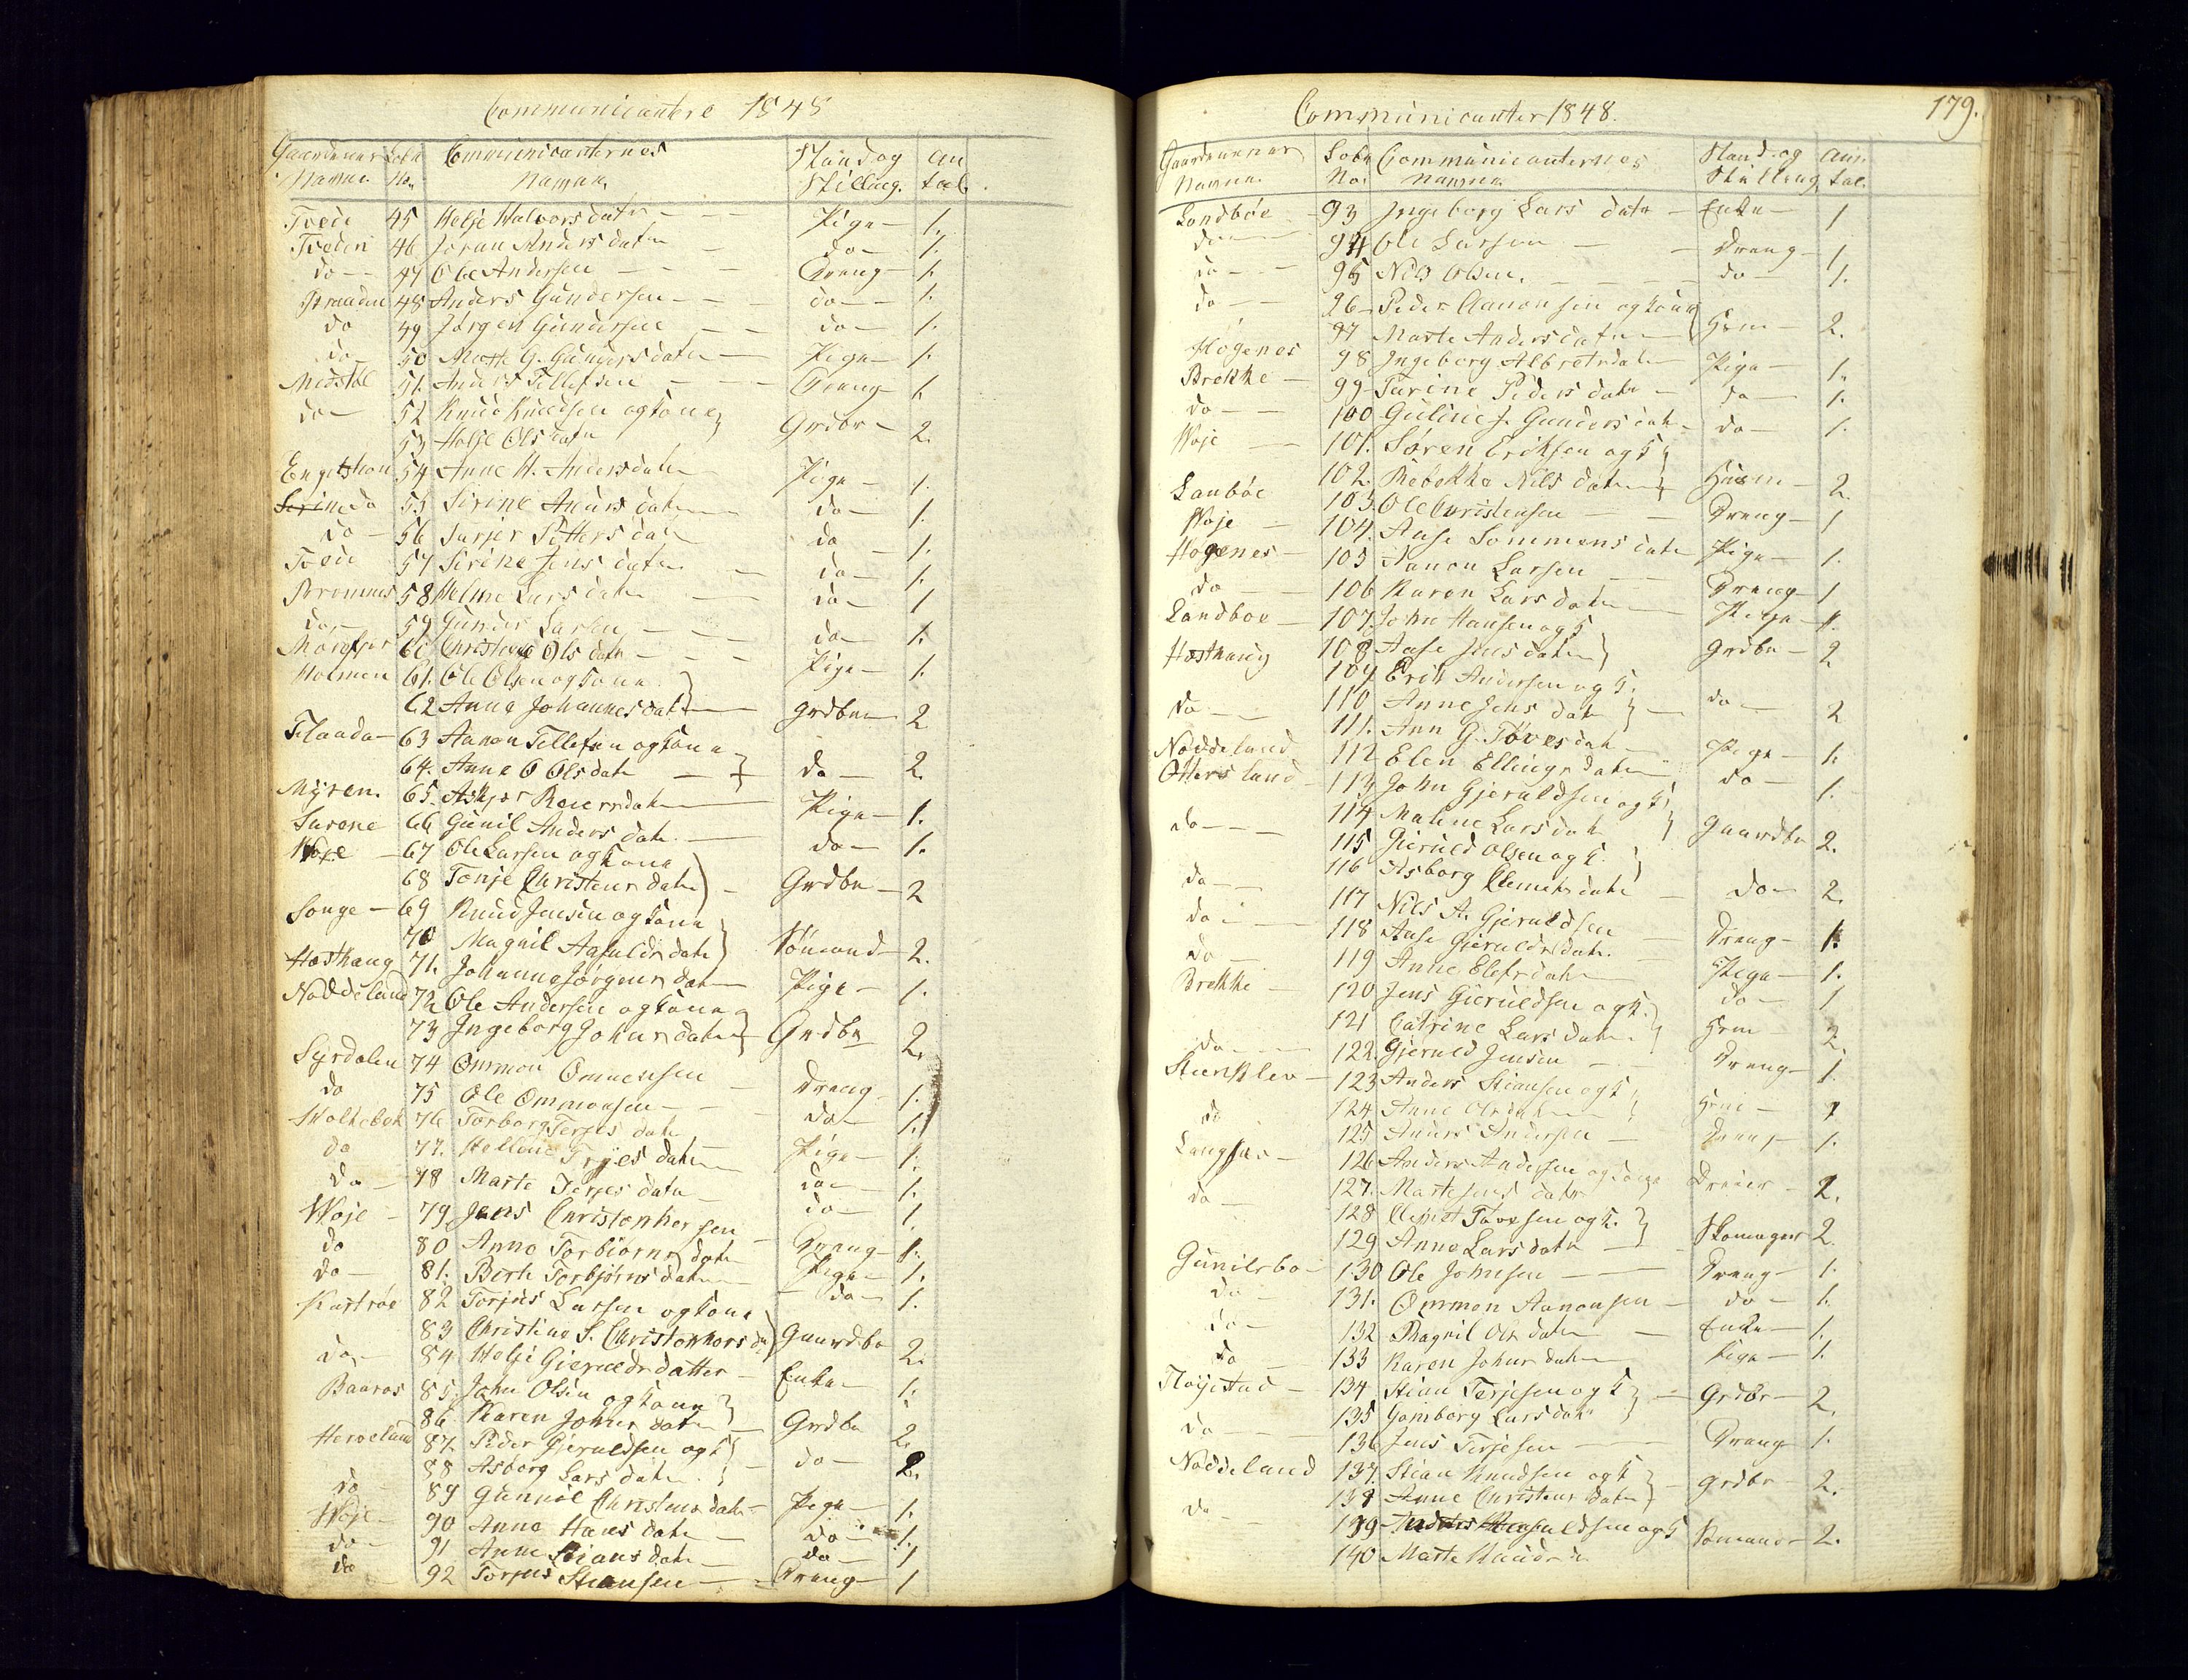 Communicantere 1848
Gaardenes Navne. Løbe No. Communicanternes Navne. Stand og Stilling. Antal.
Tvede 45 Helje Halvors datr Pige 1.
Tveden 46 Joran Anders datr do 1.
do 47 Ole Andersen Dreng 1.
Stranden 48 Anders Gundersen do 1.
do 49 Jørgen Gundersen do 1.
do 50 Marte G. Gunders datr Pige 1.
Midtbøe 51 Anders Tellefsen Dreng 1.
do 52 Knud Knudsen og kone
53 Helje Ols datr Grdbr 2.
Engelshon 54 Anne H. Anders datr Pige 1.
do 55 Sirine Anders datr do 1.
do 56 Petters datr do 1.
Tvede 57 Sirine Jens datr do 1.
58 Helene Lars datr do 1
do 59 Gunder Larsen do 1.
60 Christine Ols datr Pige 1.
Holmen 61. Ole Olsen og kone
62 Anne Johannes datr grdbr 2
Flaade 63 Aanon Tellefsen og kone
64. Anne O Ols datr do 2.
Myren 65. Askjer Reiers datr Pige 1.
66 Gunil Anders datr do 1.
Woje 67 Ole Larsen og kone
68 Tonje Christens datr Grdbr 2
Songe 69 Knud Jensen og kone
70 Magnil Aasulds datr Sömand 2.
Hæsthaug 71. Johanne Jørgens datr Pige 1.
Noddeland 72 Ole Andersen og kone
73 Ingeborg Johns datr Grdbr 2.
Syrdalen 74 Ommon Ommensen Dreng 1.
do 75 Ole Ommonsen do 1.
Holtebek 76 Torborg Terjes datr Pige 1.
do 77. Hellene Terjes datr do 1.
do 78 Marte Terjes datr do 1
Woje 79 Jens Christophersen Dreng 1.
do 80 Anne Torbiørns datr Pige 1.
do 81. Berte Torbjørns datr do 1.
82 Torjus Larsen og kone
83 Christine S. Christophers d Gaardbr 2.
do 84 Helje Gieruldsdatter Enke 1.
Baaros 85. John Olsen og kone
86 Karen Johns datr Grdbr 2.
Herveland 87. Peder Gjeruldsen og k
88 Asborg Lars datr do 2.
do 89 Gunnil Christens datr Pige 1.
Woje 90 Anne Hans datr do 1.
do 91 Anne Stians datr do 1
do 92 Torjus Stiansen Dreng 1
Communicanter 1848. 179.
Gaardenenes Navne. Lobe No. Communicanternes Navne. Stand og Stilling Antal.
Landbøe 93 Ingeborg Lars datr Enke 1
do 94 Ole Larsen Dreng 1
do 95 Nils Olsen. do 1.
do 96 Peder Aanonsen og kone
97 Marte Anders datr Hsm 2.
Høgenes 98 Ingeborg Albretsdatr Pige 1.
Brekke 99 Turine Peders datr do 1.
do 100 Guline J. Gunders datr do 1.
Woje 101. Søren Eriksen og k
102. Rebekka Nils datr Husm 2.
Lanbøe 103. Ole Christensen Dreng 1
Woje 104. Aase Sommens datr Pige 1.
Høgenes 105 Aanon Larsen Dreng 1
do 106 Karen Lars datr Pige 1.
Landboe 107. John Hansen og k
108 Aase Jens datr Grdbr 2
Hæsthaug 109 Erik Andersen og k.
110 Anne Jens datr do 2
do 111. Ann G. Töves datr Pige 1.
Noddeland 112 Elen Ellings datr do 1.
Ottersland 113 John Gjeruldsen og k
114 Maline Lars datr Gaardbr 2.
do 115 Gieruld Olsen og k.
116 Asborg Clemets datr do 2.
do 117 Nils A. Gjeruldsen Dreng 1.
do 118 Aase Gjerulds datr. Pige 1.
do 119 Anne Elefs datr do 1
Brekke 120 Jens Gieruldsen og k.
121 Catrine Lars datr. Hsm 2.
do 122. Gjeruld Jensen Dreng 1.
Steenklev 123 Anders Stiansen og k
124 Anne Ols datr Hsm 2
do 125 Anders Andersen Dreng 1.
126 Anders Andersen og kone
127. Marte Jens datr Dreier 2.
do 128 Clemet Tovesen og k.
129 Anne Lars datr Skomager 2
Gunilsbo 130 Ole Johnsen Dreng 1.
do 131. Ommon Aanonsen do 1.
do 132 Ragnil Ols datr Enke 1.
do 133 Karen Johns datr Pige 1.
Fløjestad 134 Stian Terjesen og k
135 Gomborg Lars datr Grdbr 2.
do 136 Jens Terjesen Dreng 1.
Noddeland 137. Stian Knudsen og k
138 Anne Christens datr grdbr 2.
do 139 og k Sömand 2.
140 Marte